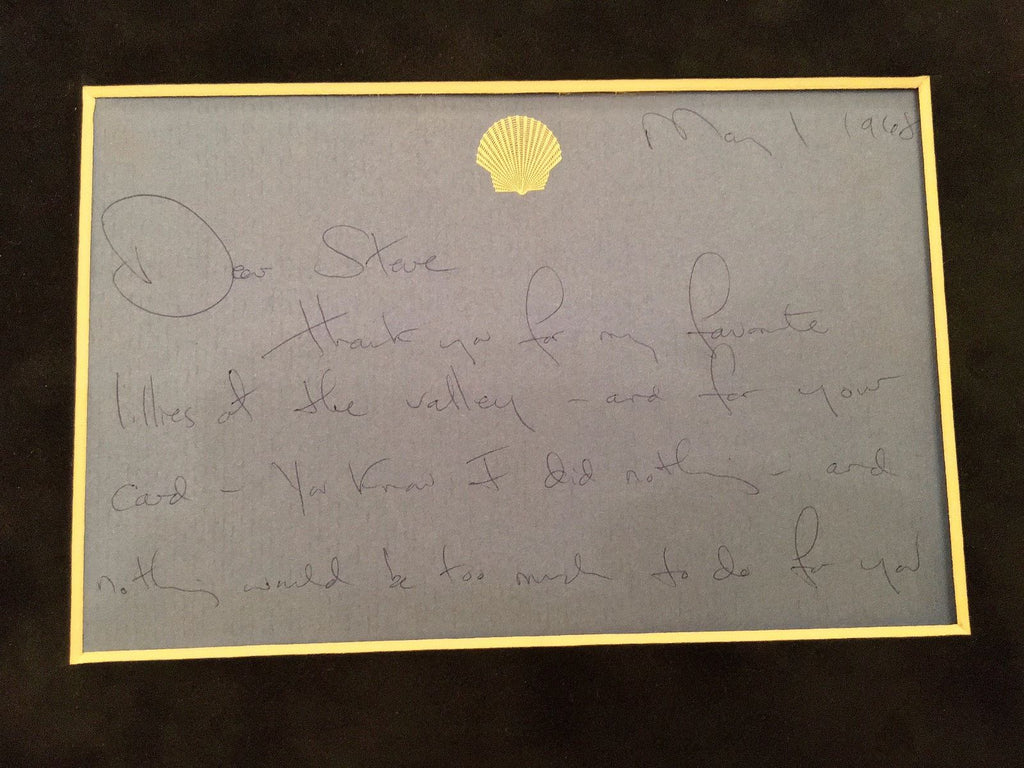 May 1 1968
Dear Steve
Thank you for my favorite
lillies of the valley - and for your
card - You know I did nothing - and
nothing would be too much to do for you